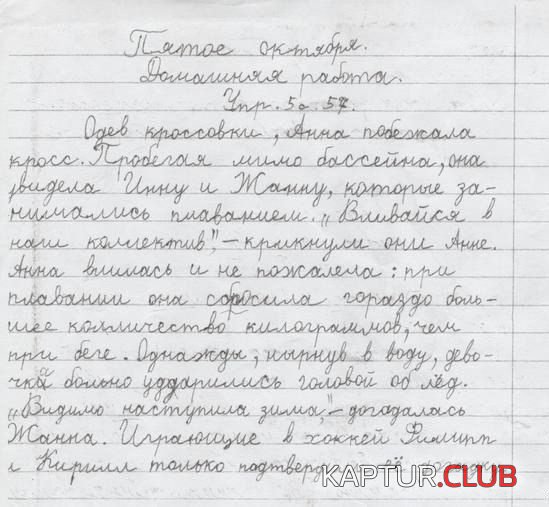 Пятое октября.
Домашняя работа.
Упр. 5 с. 57.
Одев кроссовки, Анна побежала
кросс. Пробегая мимо бассейна, она
увидела Инну и Жанну, которые за-
нимались плаванием. „Вливайся в
наш коллектив", – крикнули они Анне.
Анна влилась и не пожалела: при
плавании она сбросила гораздо боль-
шее колличество килограммов, чем
при беге. Однажды, нырнув в воду, дево-
чки больно ударились головой об лёд.
„Видимо наступила зима", – догадалась
Жанна. Играющие в хоккей Филипп
и Кирилл только подтвердили её догадку
KAPTUR.CLUB